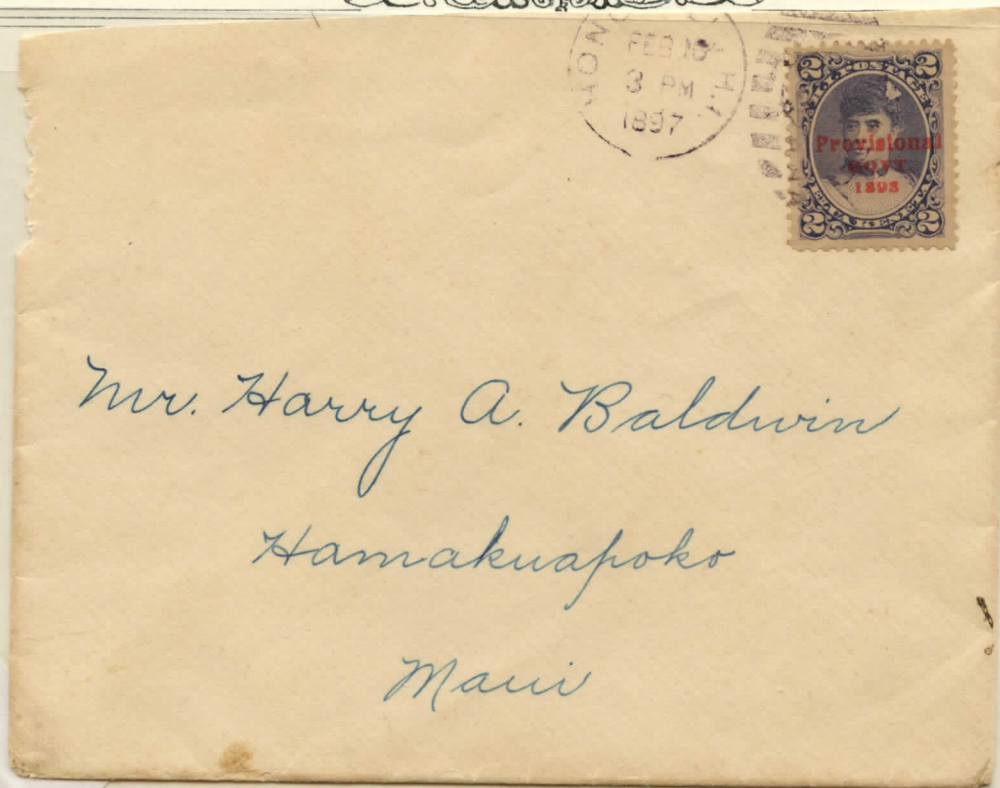 FEB 10
3 PM
1897
H.I.
2 H.I. POSTAGE 2
Provisional
GOVT.
1893
2 2
Mr. Harry A. Baldwin
Hamakuapoko
Maui